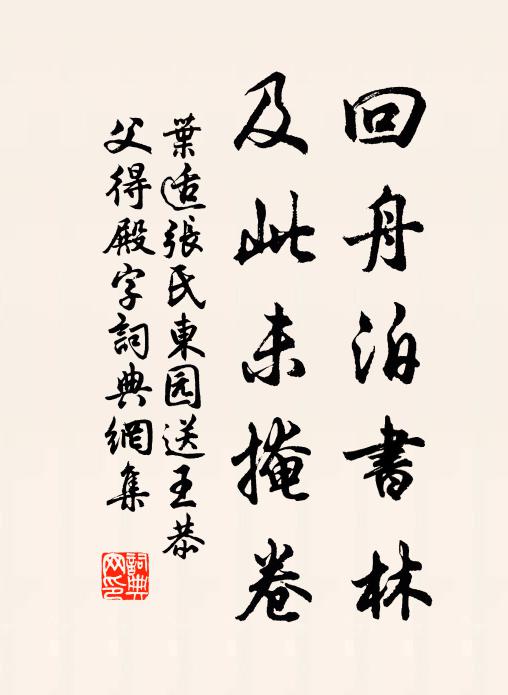 回舟泊書林
及此未掩卷
葉适張氏東园送王恭
父得殿字詞典網集
詞典
网印